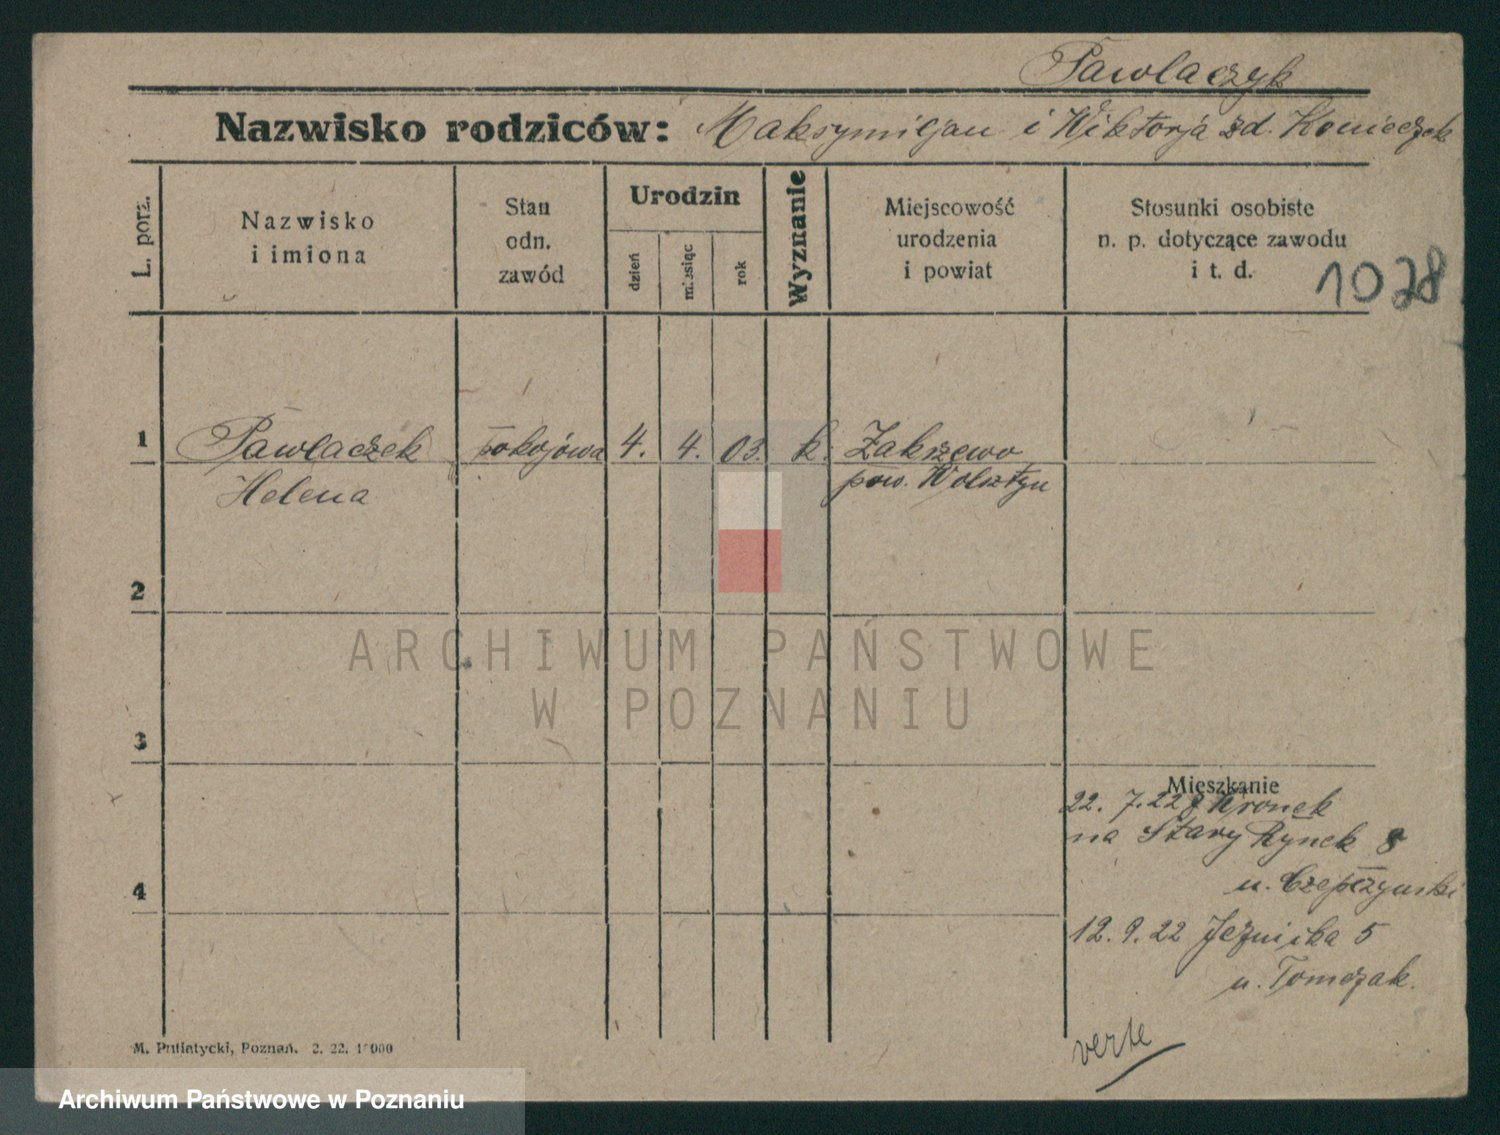 Pawlaczyk
Nazwisko rodziców: Maksymiljan i Wiktorja zd. Konieczek
L. porz.
Nazwisko
i imiona
Stan
odn.
zawód
Urodzin
dzień
miesiąc
rok
Wyznanie
Miejscowość
urodzenia
i powiat
Stosunki osobiste
n. p. dotyczące zawodu
i t. d.
1028
1 Pawlaczek pokojówa 4. 4. 03. k. Zakrzewo
Helena pow. Wolsztyn
2
3
4
Mieszkanie
22. 7. 22 z Kronek
na Stary Rynek 8
u. Czepczyński
12. 9. 22 5
u. Tomczak.
verte
M. Putiatycki, Poznań. 2. 22. 1000
ARCHIWUM PAŃSTWOWE
W POZNANIU
Archiwum Państwowe w Poznaniu